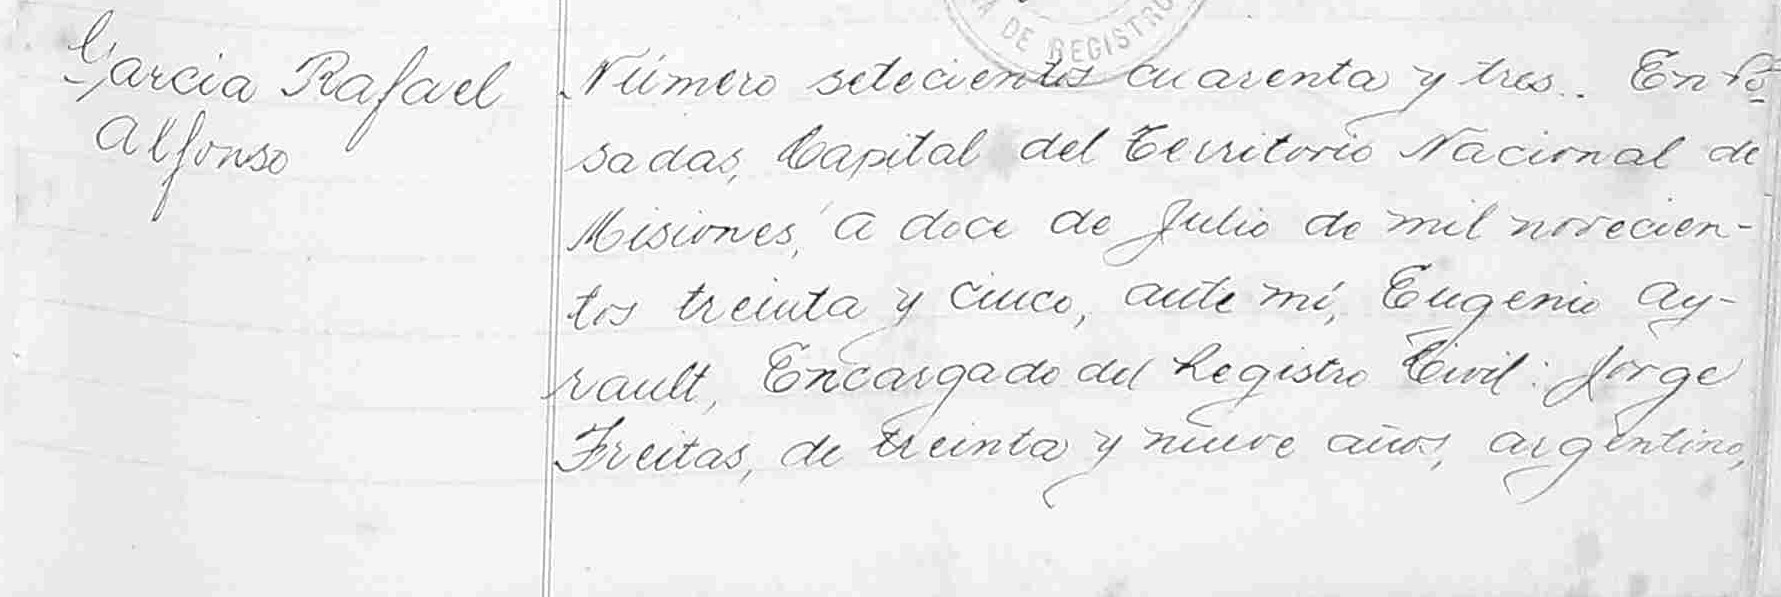 DE REGISTRO
Garcia Rafael
Alfonso
Número setecientos cuarenta y tres.. En Po-
sadas, Capital del Territorio Nacional de
Misiones, a doce de Julio de mil novecien-
tos treinta y cinco, ante mí, Eugenio Ay-
rault, Encargado del Registro Civil: Jorge
Freitas, de treinta y nueve años, argentino,